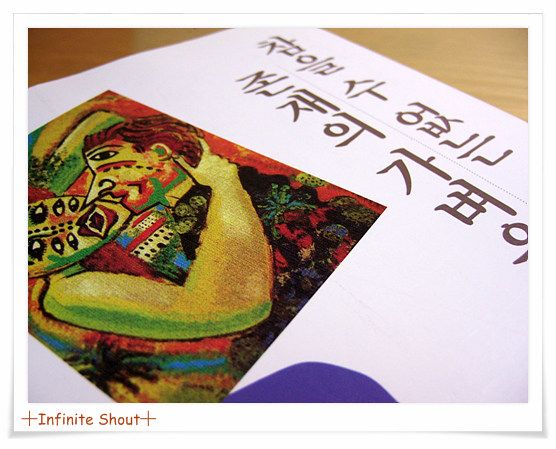 참을 수 없는
존재의 가벼
+Infinite Shout+